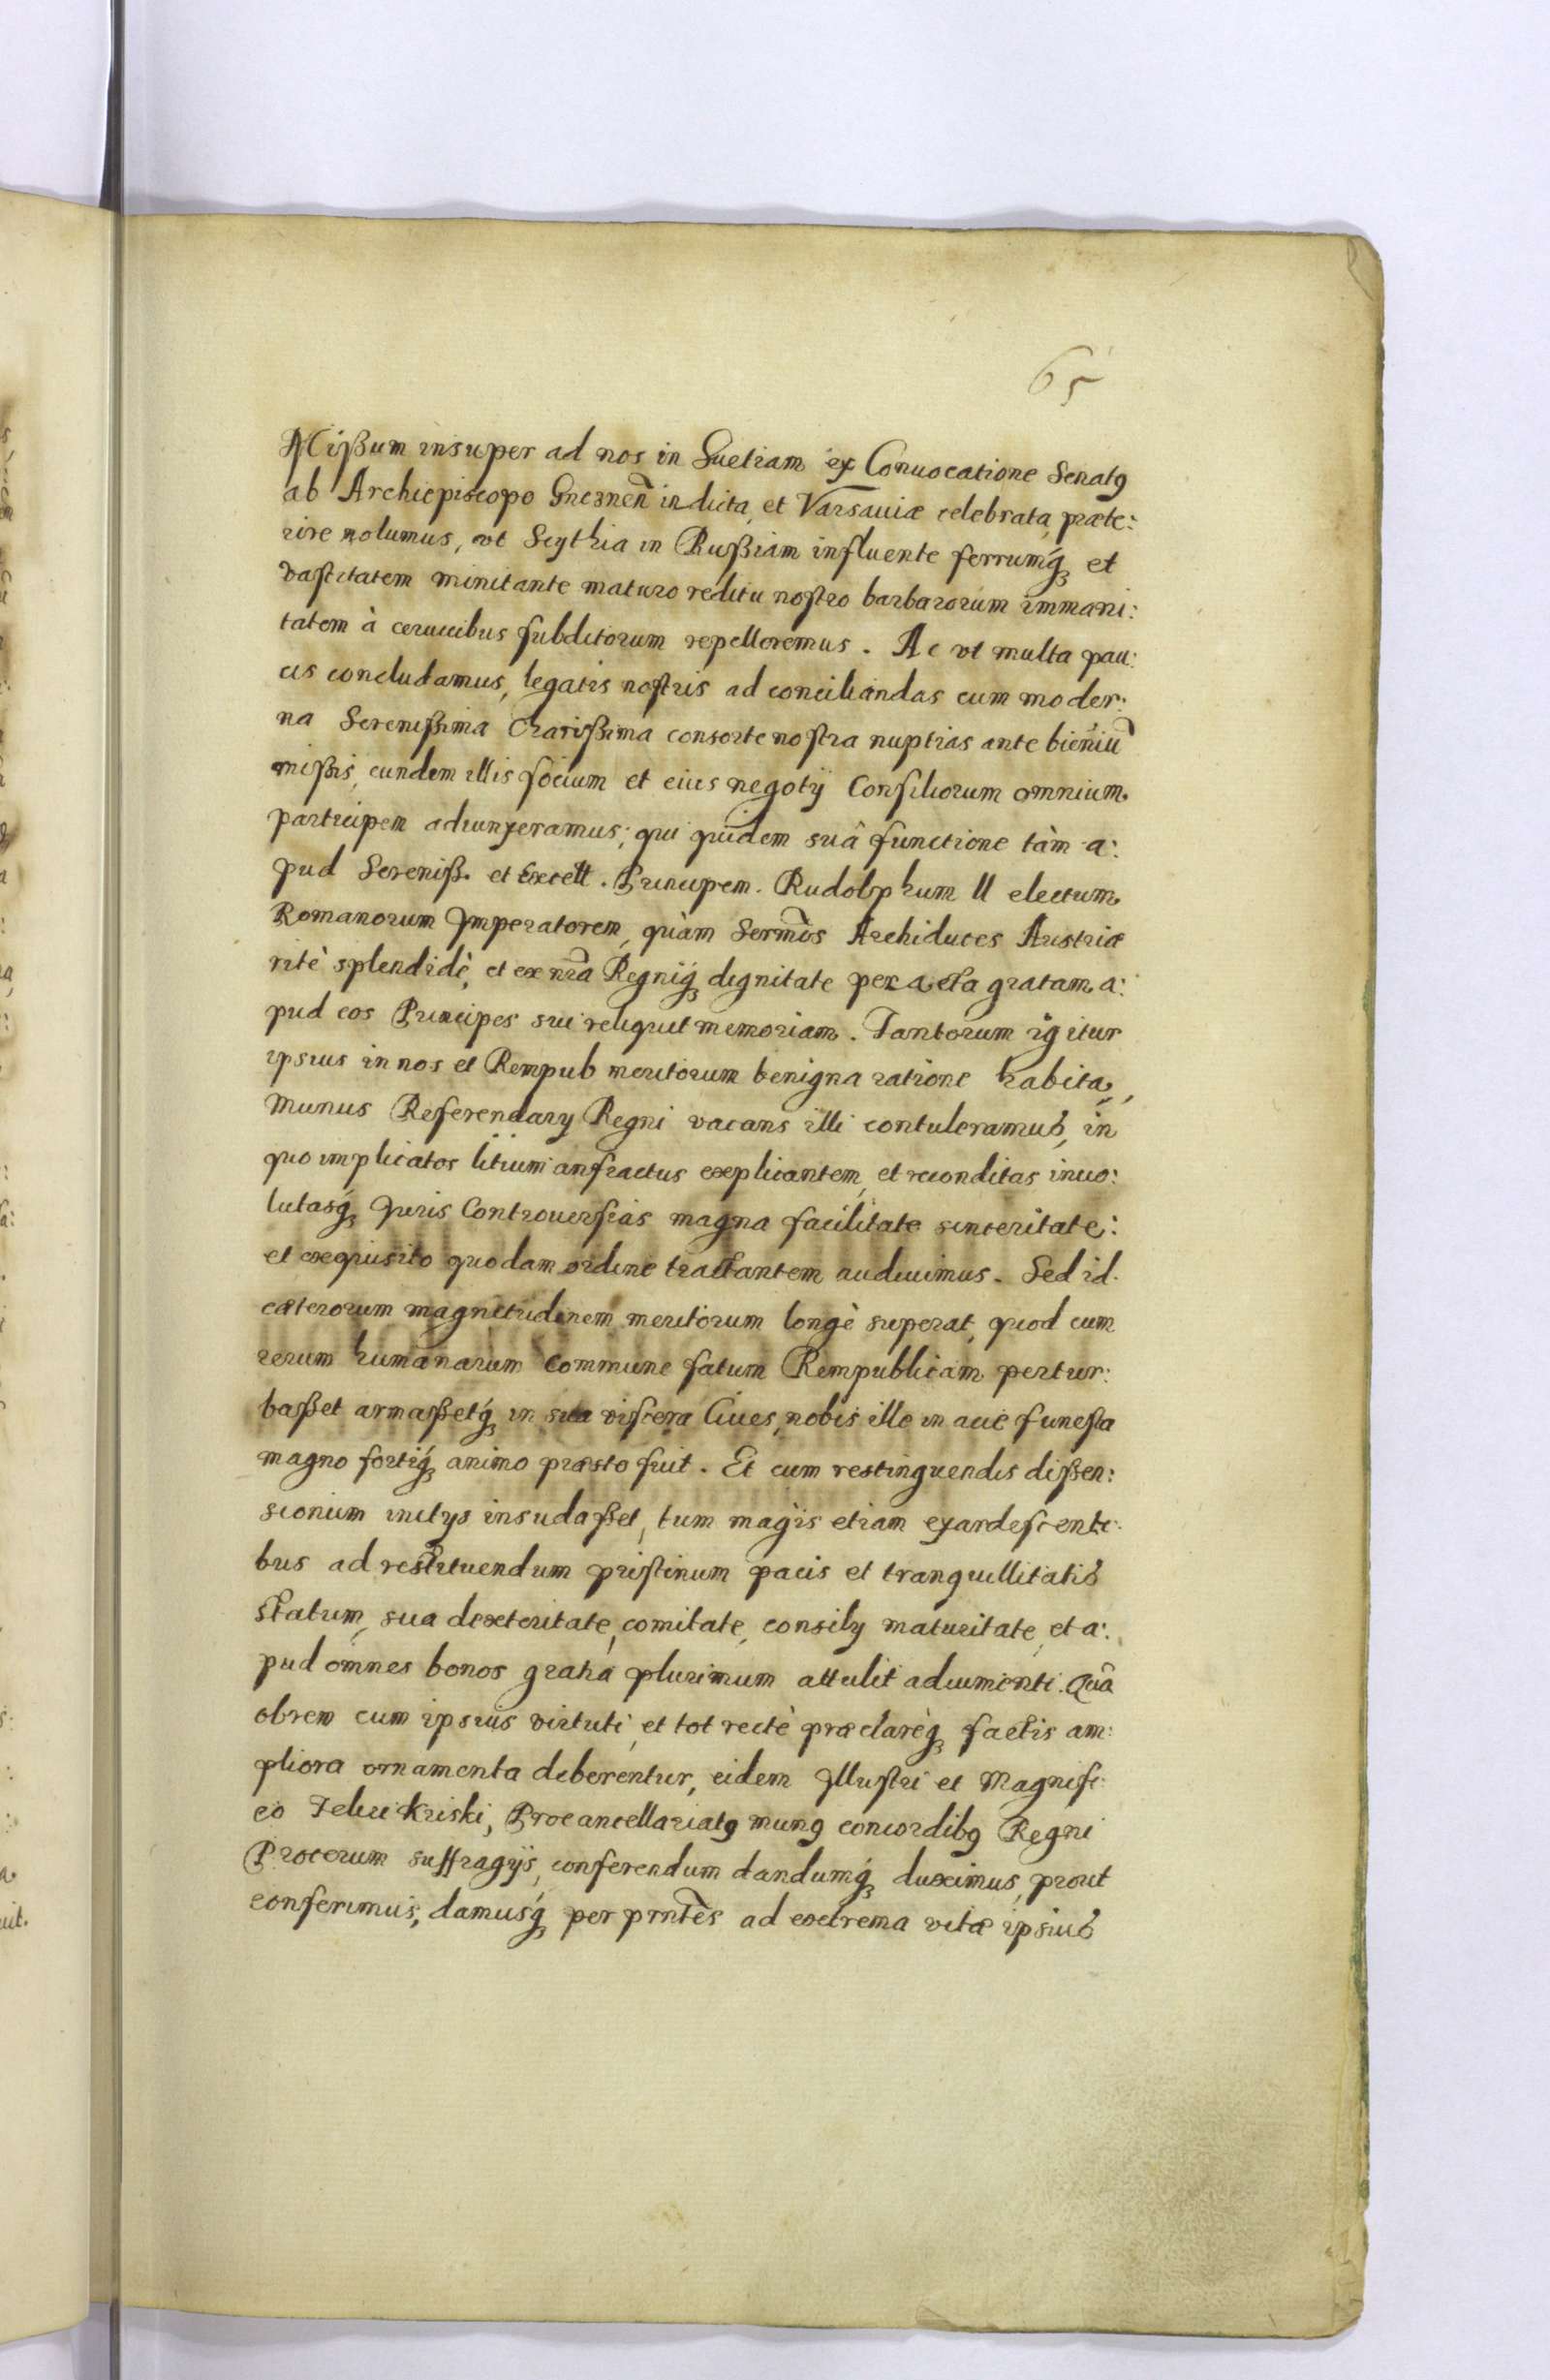 65
Mißum insuper ad nos in Suetiam ex Conuocatione Senatꝯ
ab Archiepiscopo Gneznen̄ indicta, et Varsauiæ celebrata, præte:
rire nolumus, vt Scythia in Rußiam influente ferrumq́ꝫ et
vastitatem minitante maturo reditu nostro barbarorum immani:
tatem à ceruicibus subditorum repelleremus. Ac vt multa pau:
cis concludamus, legatis nostris ad conciliandas cum moder:
na Serenißima Charißima consorte nostra nuptias ante bieniū
mißis, eundem illis socium et eius negotÿ Consiliorum omnium
participem adiunxeramus; qui quidem suâ functione tàm a:
pud Sereniß. et Excell. Principem. Rudolphum II electum
Romanorum Imperatorem, quàm Sermōs Archiduces Austriæ
ritè splendidè, et ex nr̄a Regniq́ꝫ dignitate peracta gratam a:
pud eos Principes sui reliquit memoriam. Tantorum igitur
ipsius in nos et Rempub meritorum benigna ratione habita,
Munus Referendarÿ Regni vacans illi contuleramus, in
quo implicatos litium anfractus explicantem, et reconditas inuo:
lutasq́ꝫ Juris Controuersias magna facilitate sinceritate:
et exquisito quodam ordine tractantem audiuimus. Sed id
cæterorum magnitudinem meritorum longè superat, quod cum
rerum humanarum commune fatum Rempublicam pertur:
baßet armaßetq́ꝫ in sua viscera Ciues, nobis ille in acie funesta
magno fortiq́ꝫ animo præsto fuit. Et cum restinguendis dißen:
sionum initÿs insudaßet, tum magis etiam exardescenti:
bus ad restituendum pristinum pacis et tranquillitatis
statum, sua dexteritate, comitate, consilÿ maturitate, et a:
pud omnes bonos gratia plurimum attulit adiumenti. Quā
obrem cum ipsius virtuti, et tot rectè præclarèq́ꝫ factis am:
pliora ornamenta deberentur, eidem Illustri et Magnifi:
co Felici Kriski, Procancellariatꝯ munꝯ concordibꝯ Regni
Procerum suffragÿs, conferendum dandumq́ꝫ duximus, prout
conferimus, damusq́ꝫ per prnt̄es ad extrema vitæ ipsius